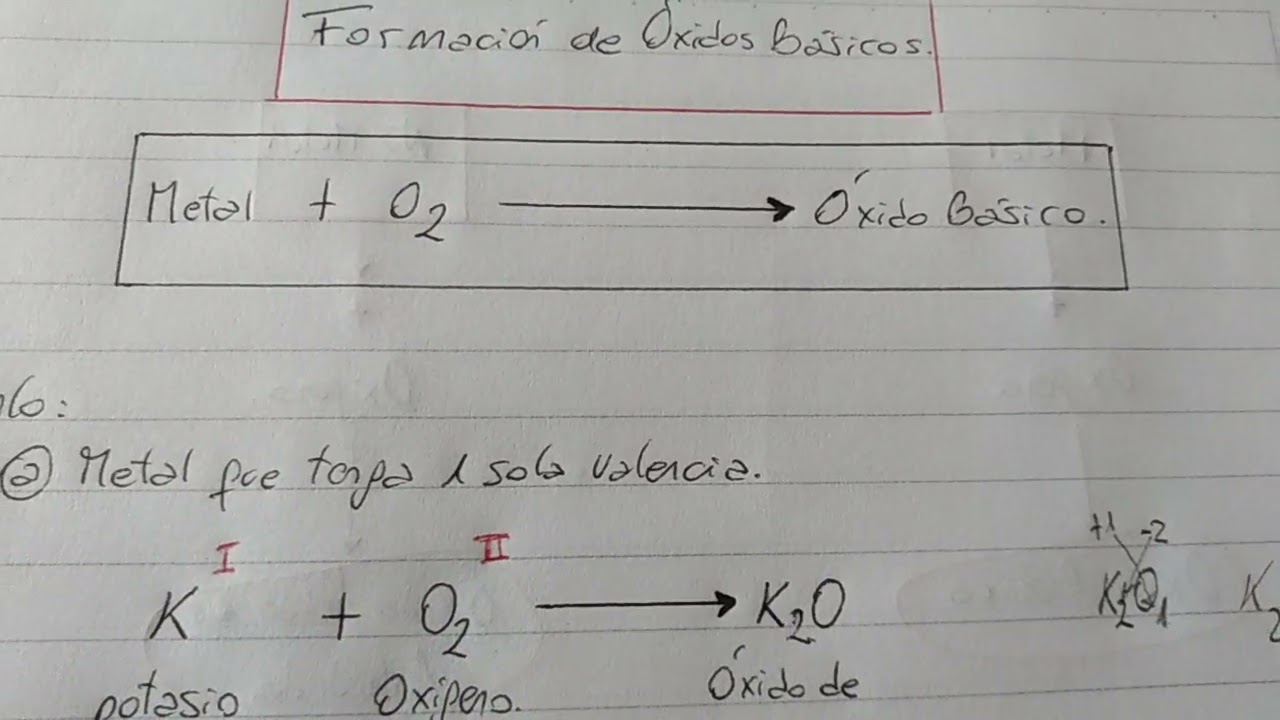 Formación de Óxidos Básicos.
Metal + O2 → Óxido Básico.
lo:
a) Metal que tenga 1 sola valencia.
I II +1 -2
K + O2 → K2O K2O1 K2
potasio Oxígeno. Óxido de